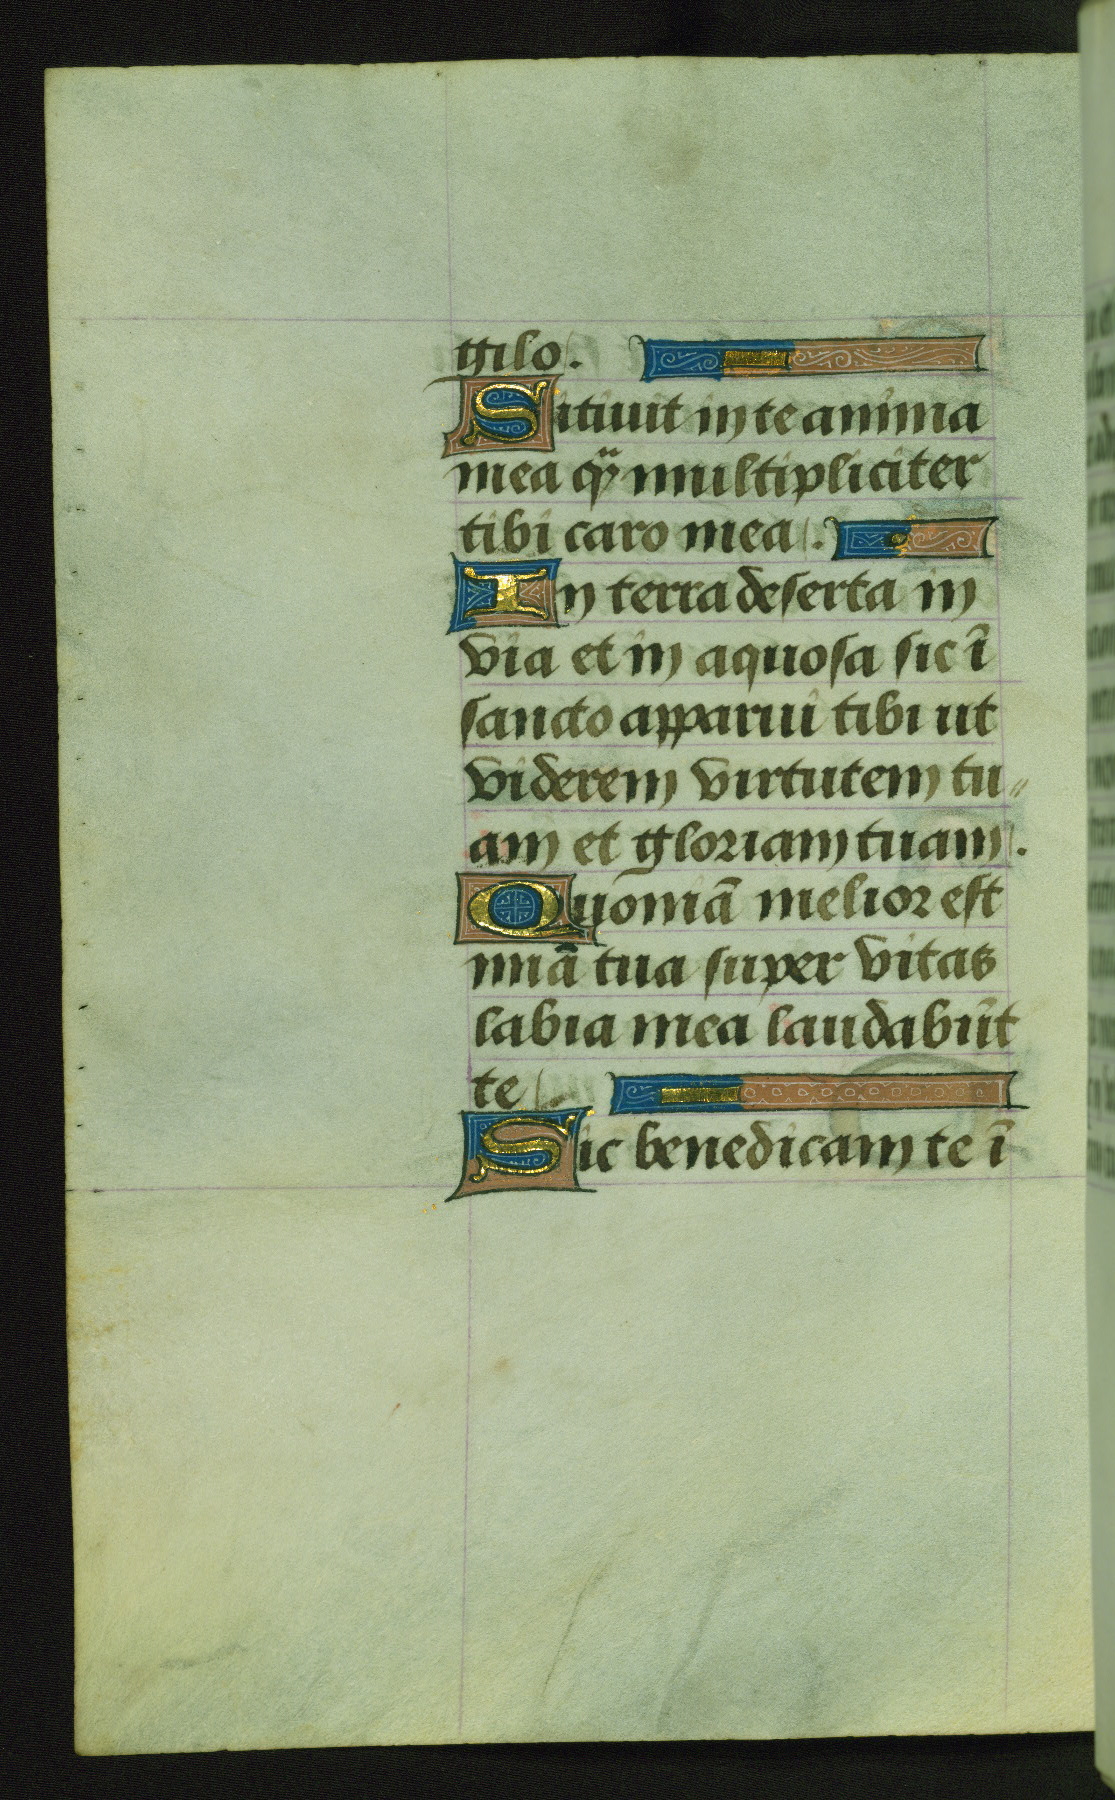 gilo.
Sitiuit in te anima
mea q̈ multipliciter
tibi caro mea.
In terra deserta in
via et in aquosa sic ī
sancto apparui tibi ut
viderem virtutem tu〃
am et gloriam tuam.
Quoniā melior est
mīā tua super vitas
labia mea laudabūt
te
Sic benedicam te ī